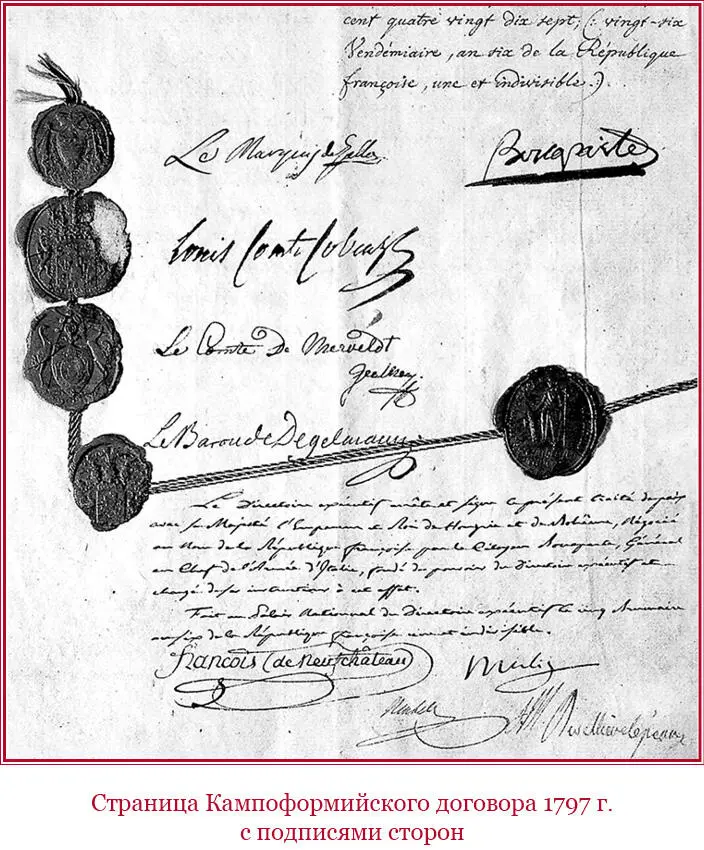 cent quatre vingt dix sept, (: vingt-six
Vendémiaire, an six de la République
françoise, une et indivisible :)
Le Marquis de Gallo
Bonaparte
Louis Comte Cobenzl
Le Comte De Merveldt
Le Baron de Degelmann
Le Directoire exécutif arrête et signe le présent traité de paix
avec sa Majesté l'Empereur et Roi de Hongrie et de Bohême, négocié
au Nom de la République françoise par le Citoyen Bonaparte, Général
en Chef de l'Armée d'Italie, fondé de pouvoir du Directoire exécutif et
chargé de ses instructions à cet effet.
Fait au Palais National du Directoire exécutif le cinq Brumaire
an six de la République françoise une et indivisible.
François (de Neufchâteau)
Merlin
Страница Кампоформийского договора 1797 г.
с подписями сторон